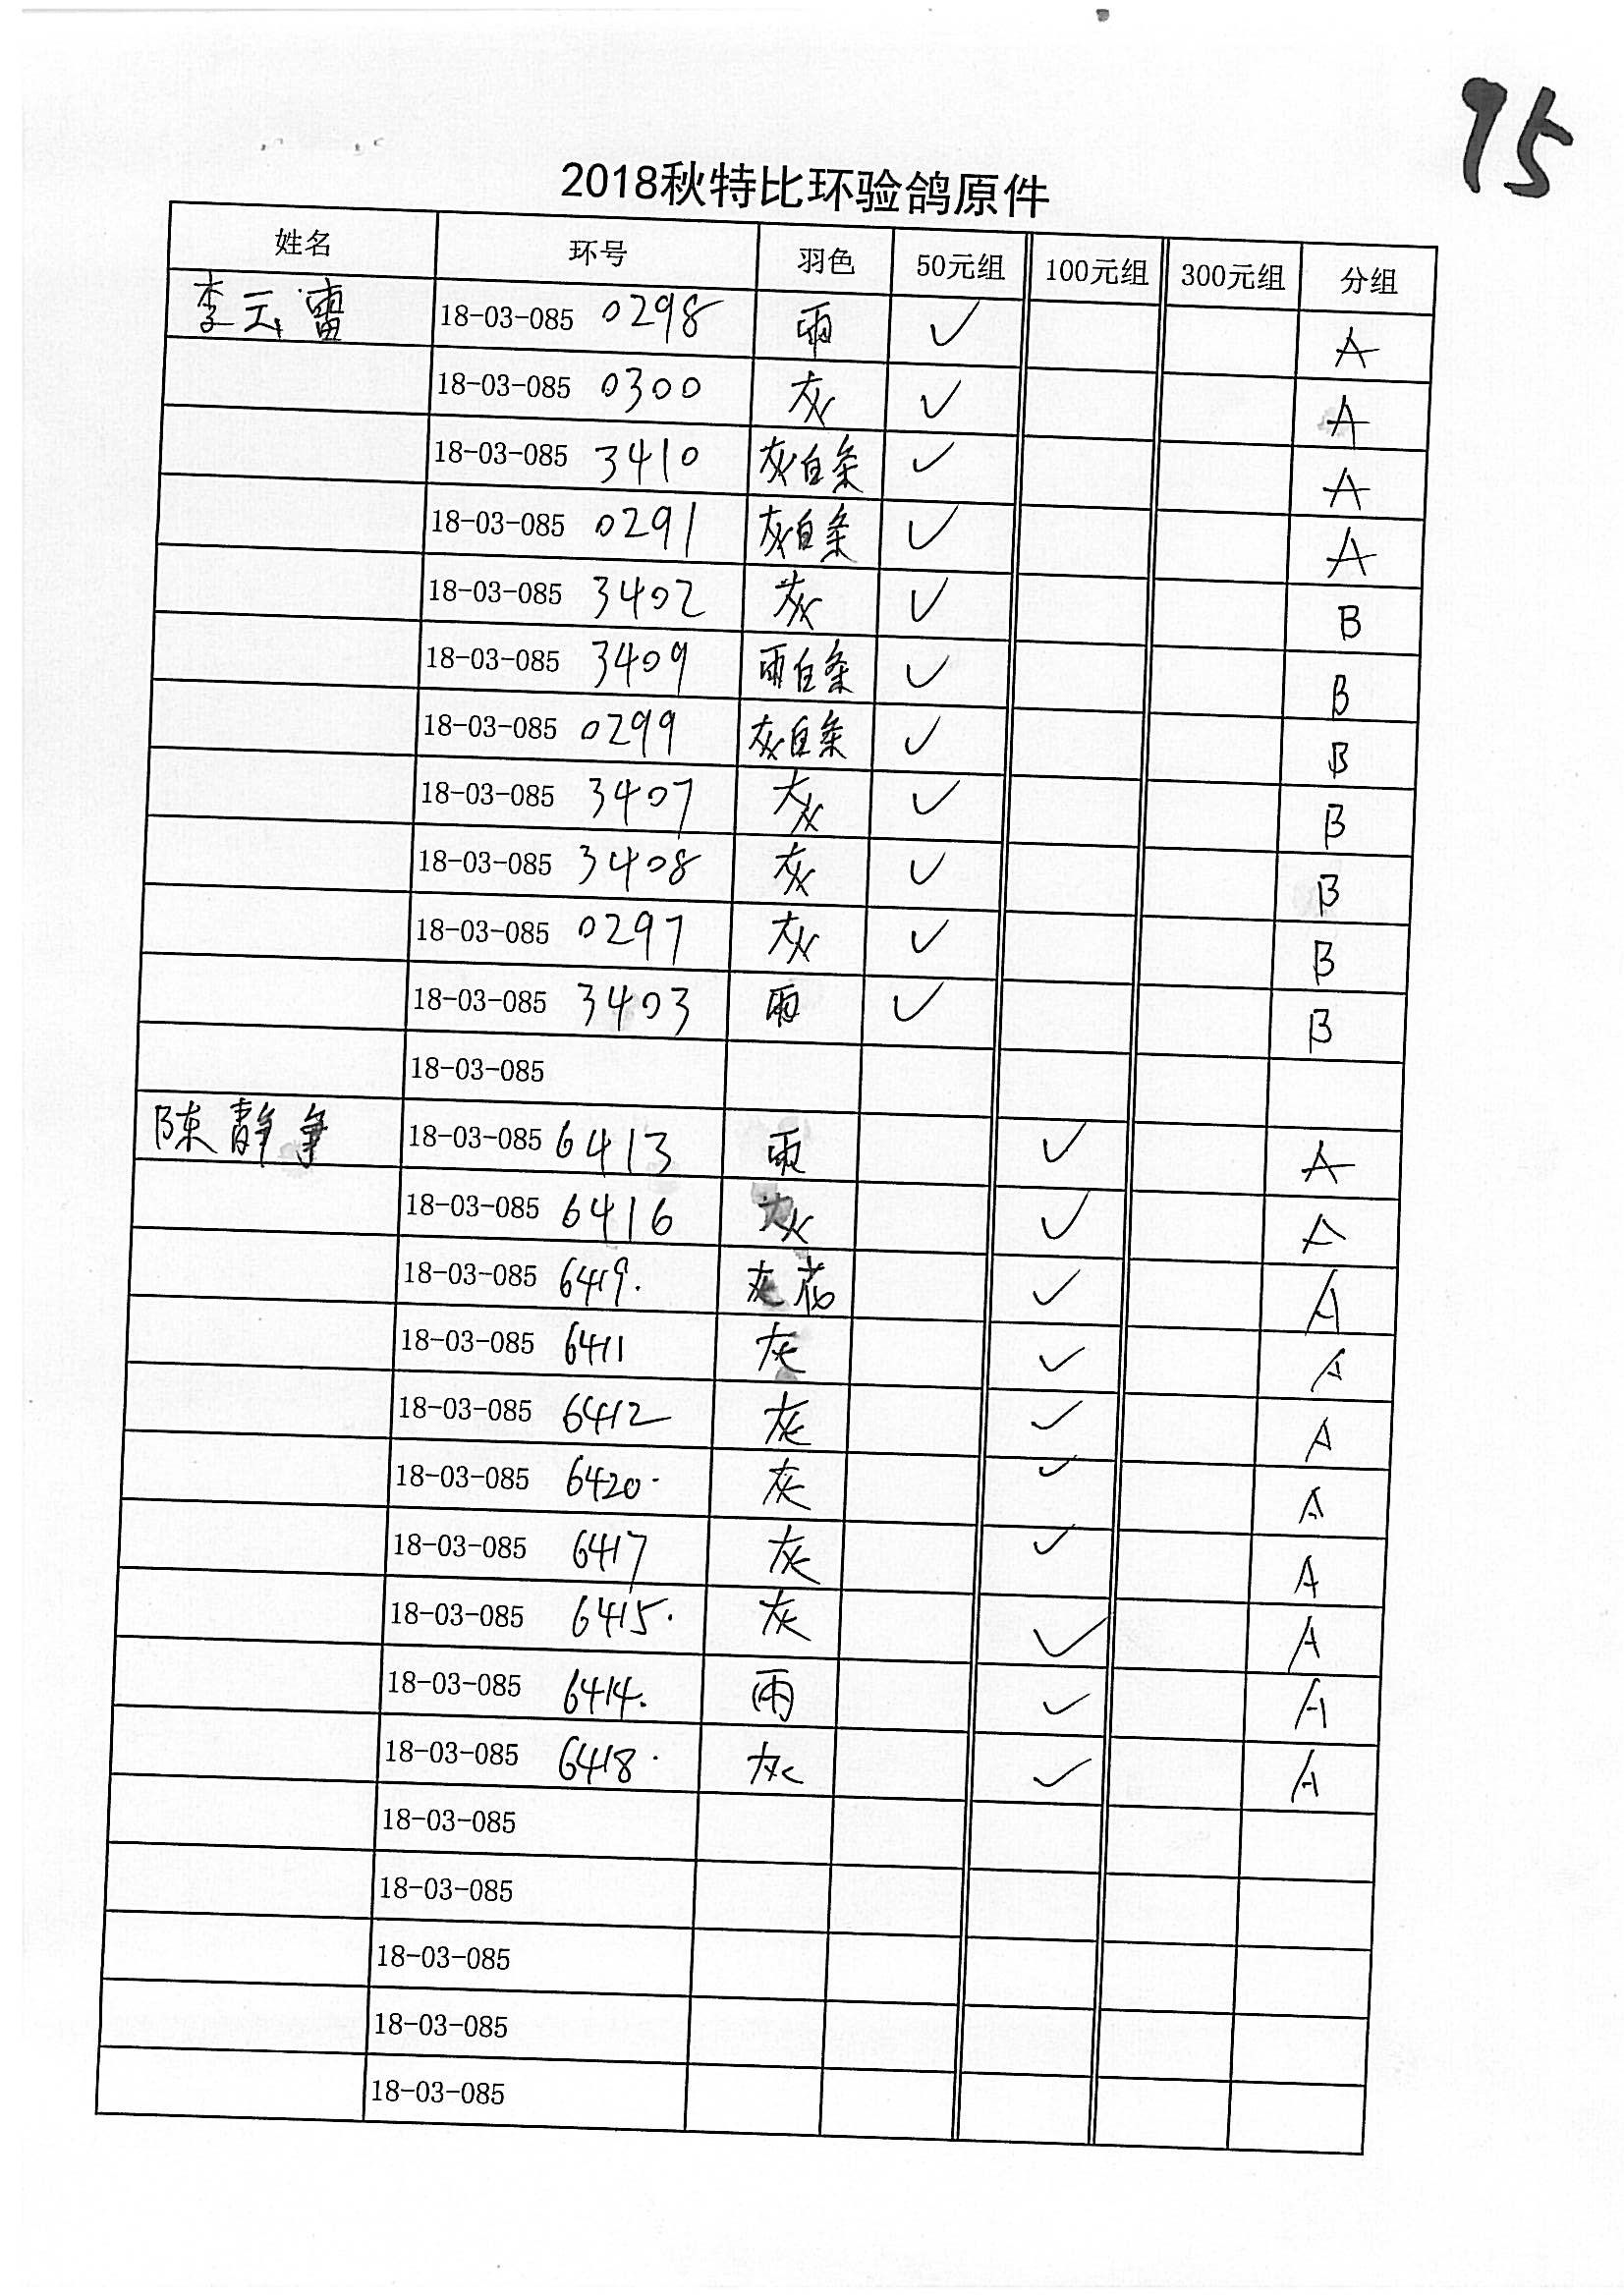 95
2018秋特比环验鸽原件
姓名 环号 羽色 50元组 100元组 300元组 分组
李云雷 18-03-085 0298 雨 ✓ A
18-03-085 0300 灰 ✓ A
18-03-085 3410 灰白条 ✓ A
18-03-085 0291 灰白条 ✓ A
18-03-085 3402 灰 ✓ B
18-03-085 3409 雨白条 ✓ B
18-03-085 0299 灰白条 ✓ B
18-03-085 3407 灰 ✓ B
18-03-085 3408 灰 ✓ B
18-03-085 0297 灰 ✓ B
18-03-085 3403 雨 ✓ B
18-03-085
陈静争 18-03-085 6413 雨 ✓ A
18-03-085 6416 灰 ✓ A
18-03-085 6419. 灰花 ✓ A
18-03-085 6411 灰 ✓ A
18-03-085 6412 灰 ✓ A
18-03-085 6420. 灰 ✓ A
18-03-085 6417 灰 ✓ A
18-03-085 6415. 灰 ✓ A
18-03-085 6414. 雨 ✓ A
18-03-085 6418. 灰 ✓ A
18-03-085
18-03-085
18-03-085
18-03-085
18-03-085